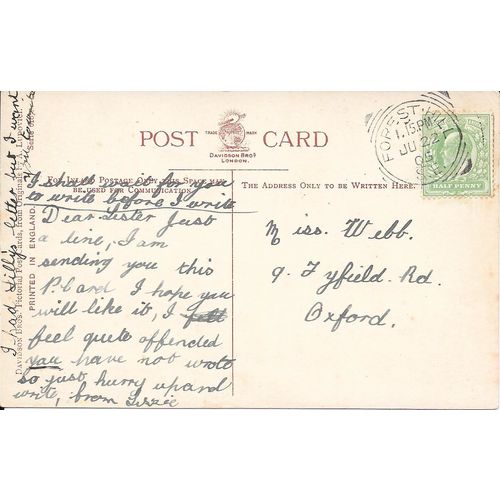 POST CARD
TRADE MARK
DAVIDSON BROS
LONDON.
FOREST HILL
1.15 PM
JU 22
05
S.E
HALF PENNY
FOR INLAND POSTAGE ONLY THIS SPACE MAY
BE USED FOR COMMUNICATION
THE ADDRESS ONLY TO BE WRITTEN HERE.
I had Lillys letter but I want
you to
DAVIDSON BROS. Pictorial Post Cards, from Originals by
PRINTED IN ENGLAND
I shall look for you
to write before I write
Dear Sister Just
a line, I am
sending you this
P. Card I hope you
will like it, I felt
feel quite offended
you have not wrote
so just hurry up and
write, from Lizzie
Miss. Webb.
9. Fyfield. Rd.
Oxford.